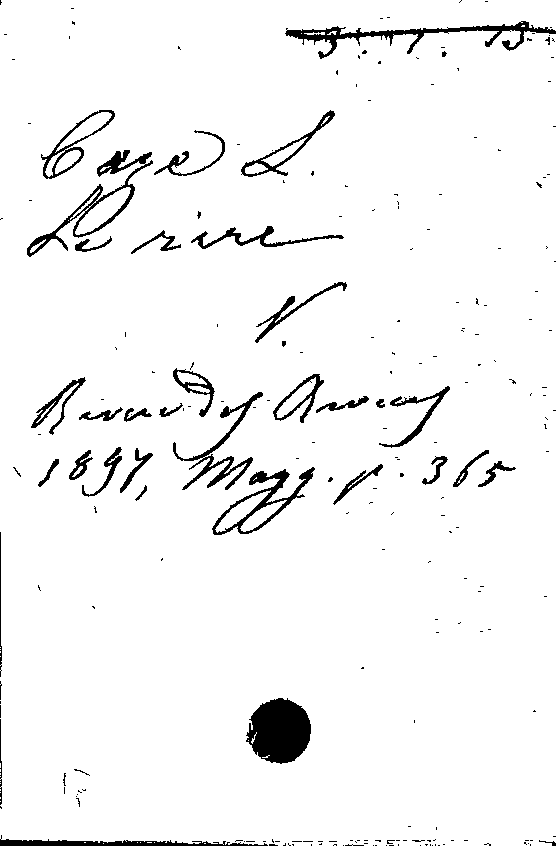 3. 1. 13
Caze L.
Le rire
V.
Revue des Revues
1897, Magg. p. 365